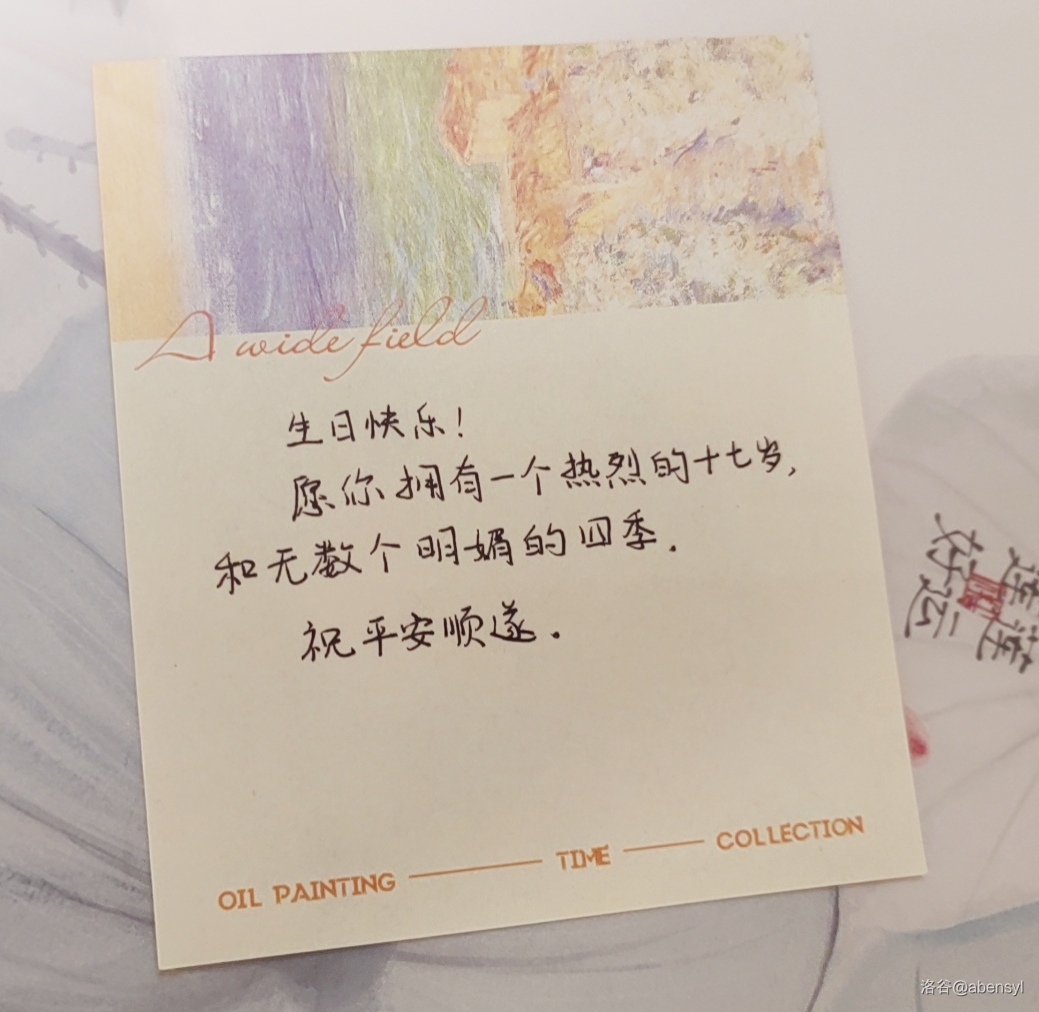 A wide field
生日快乐！
愿你拥有一个热烈的十七岁，
和无数个明媚的四季．
祝平安顺遂．
OIL PAINTING — TIME — COLLECTION
莲莲
好运
洛谷@abensyl